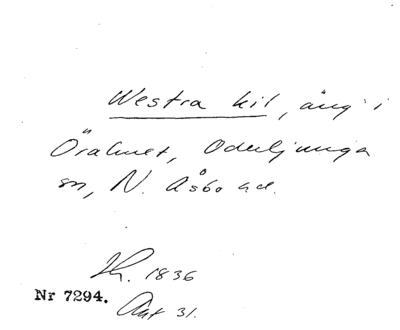 Westra kil, äng i
Öralmet, Oderljunga
sn, N. Åsbo hd.
Th. 1836
Nr 7294. Akt 31.